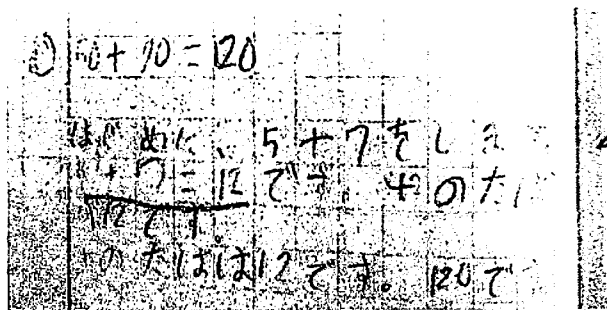 ① 50+70=120
はじめに、5+7をしま
5+7=12です 十のたば
12です。
のたばは12です。120で